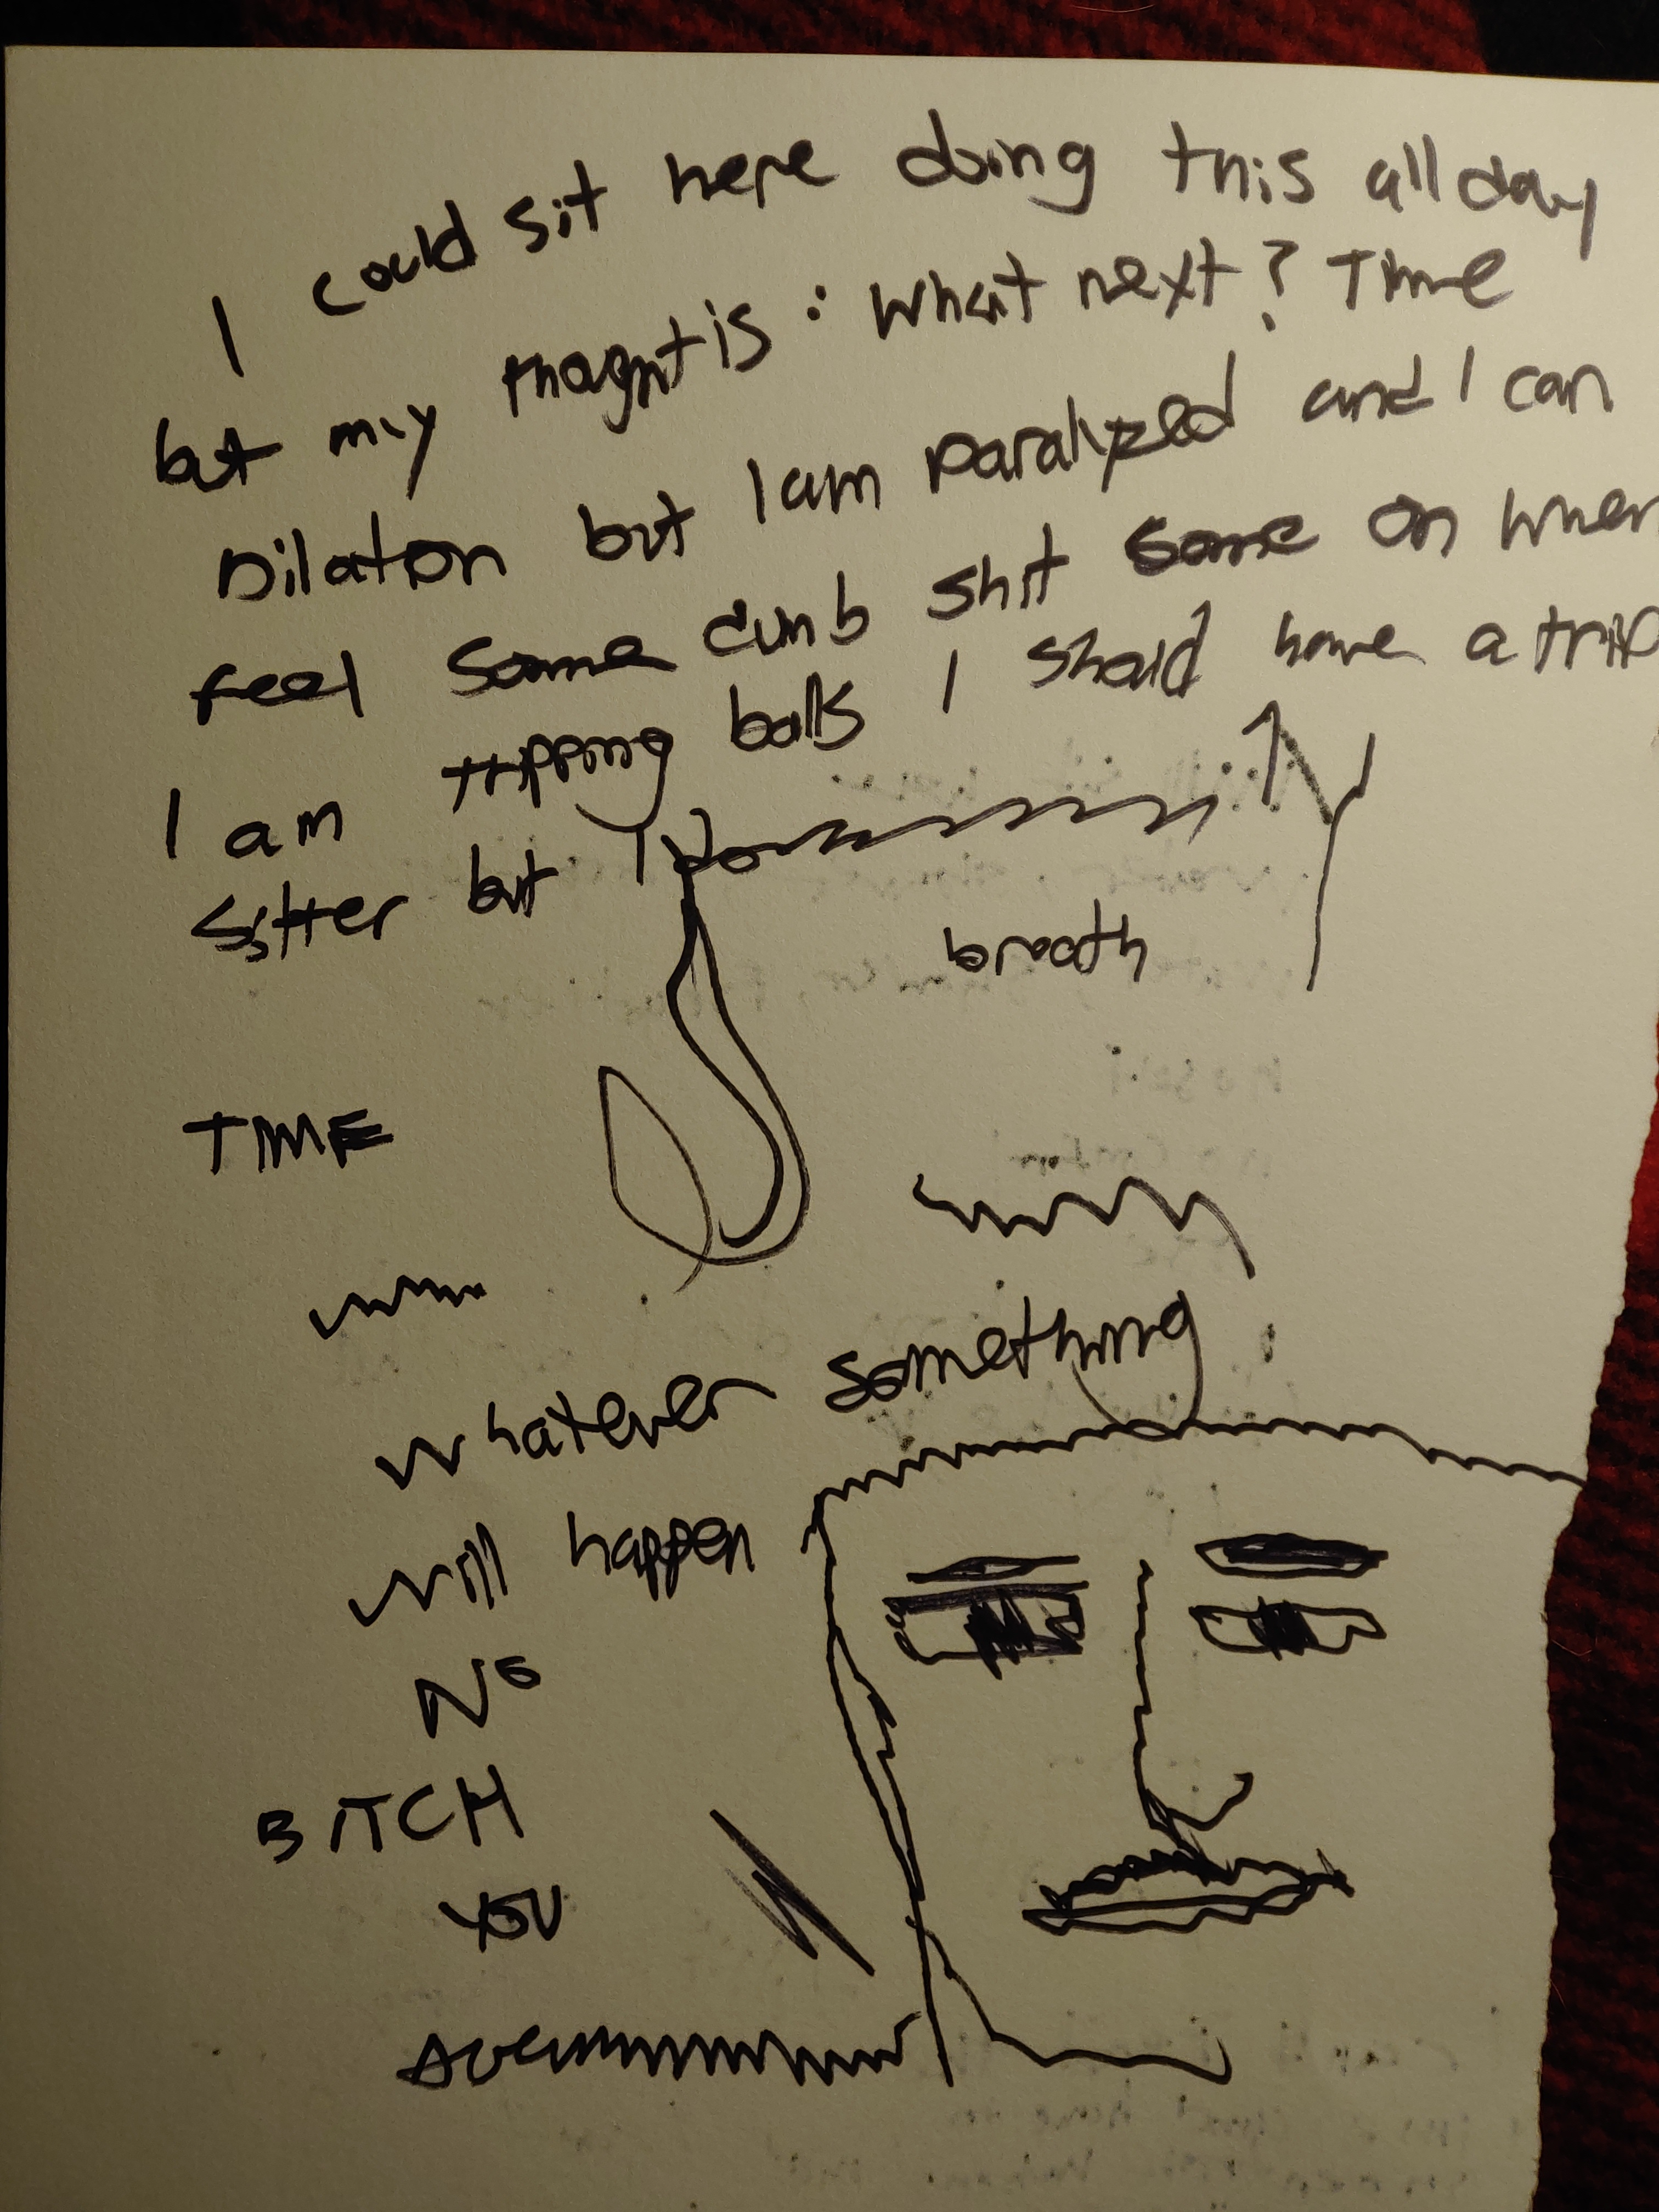 I could sit here doing this all day
but my thagnt is : what next? Time
Dilaton but I am paralyzed and I can
feel some dumb shit some on when
I am tripping balls I shoud have a trip
sitter but I
breath
TIME
whatever something
will happen
No
BITCH
YOU